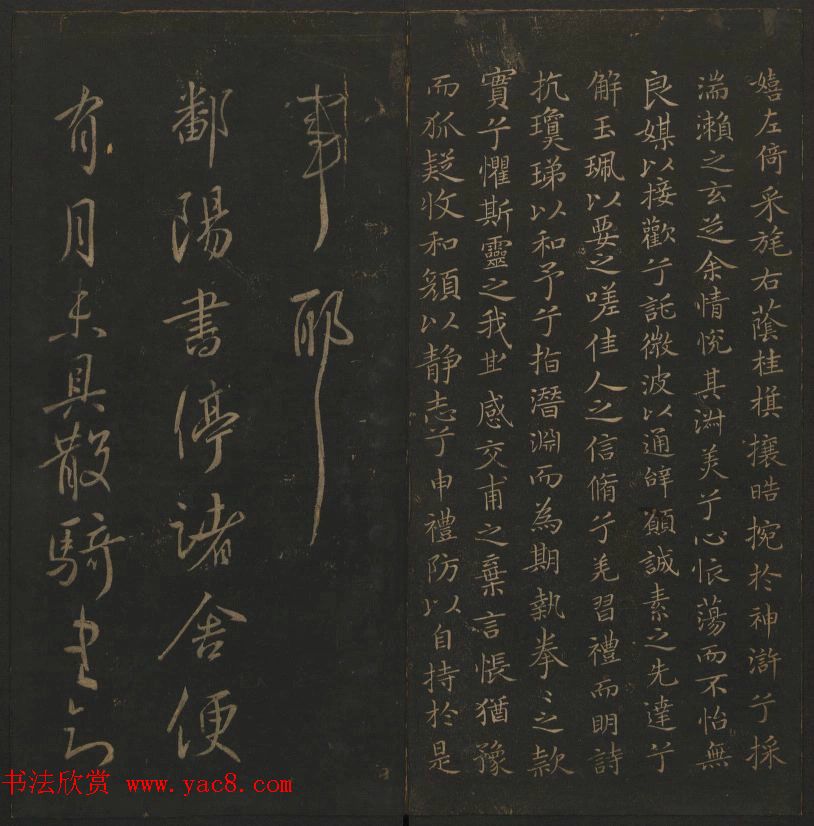 嬉左倚采旄右蔭桂旗攘皓捥於神滸兮採
湍瀨之玄芝余情悅其淑美兮心悵蕩而不怡無
良媒以接歡兮託微波以通辭願誠素之先達兮
解玉珮以要之嗟佳人之信脩兮羌習禮而明詩
抗瓊珶以和予兮指潛淵而為期執拳〻之款
實兮懼斯靈之我欺感交甫之棄言悵猶豫
而狐疑收和顏以靜志兮申禮防以自持於是
事耶
鄱陽書停諸舍便
有月未具散騎書
书法欣赏 www.yac8.com